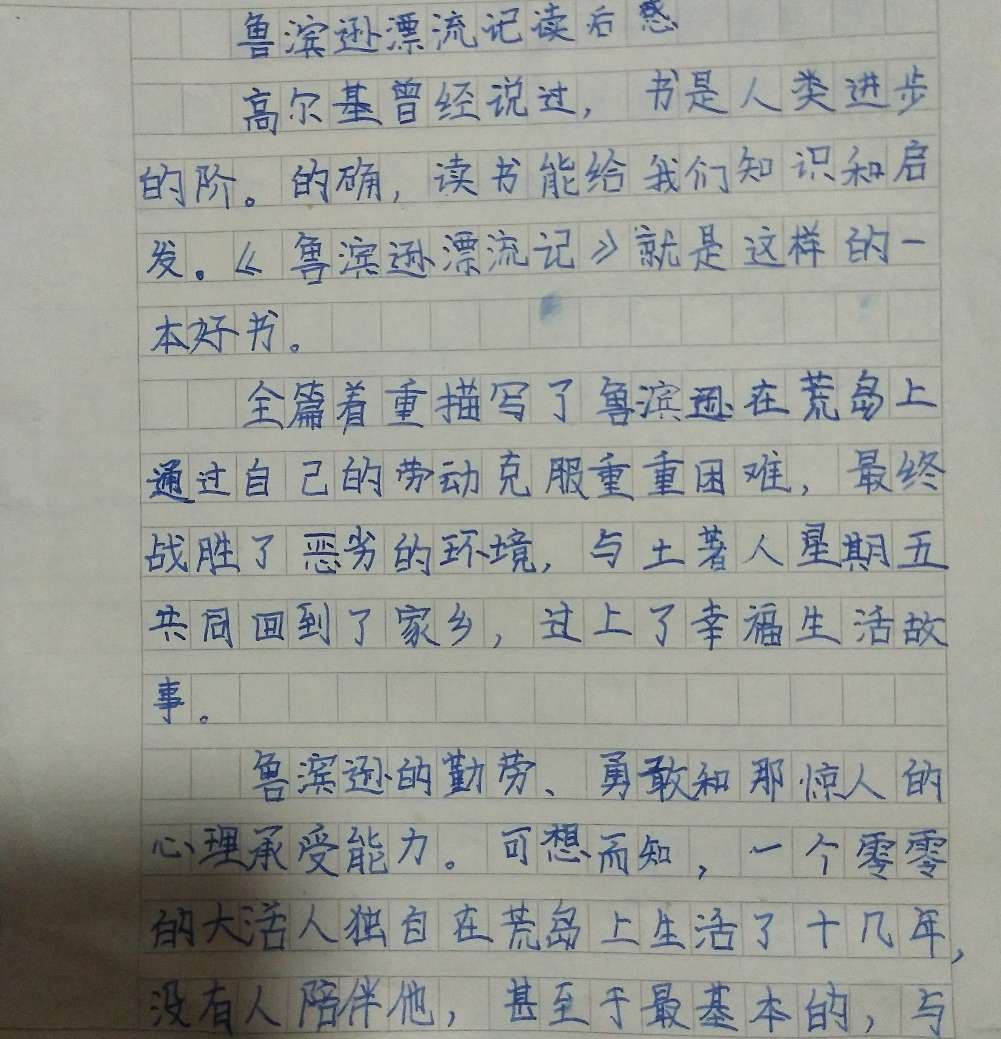 鲁滨逊漂流记读后感
高尔基曾经说过，书是人类进步
的阶。的确，读书能给我们知识和启
发。《鲁滨逊漂流记》就是这样的一
本好书。
全篇着重描写了鲁滨逊在荒岛上
通过自己的劳动克服重重困难，最终
战胜了恶劣的环境，与土著人星期五
共同回到了家乡，过上了幸福生活故
事。
鲁滨逊的勤劳、勇敢和那惊人的
心理承受能力。可想而知，一个零零
的大活人独自在荒岛上生活了十几年，
没有人陪伴他，甚至于最基本的，与